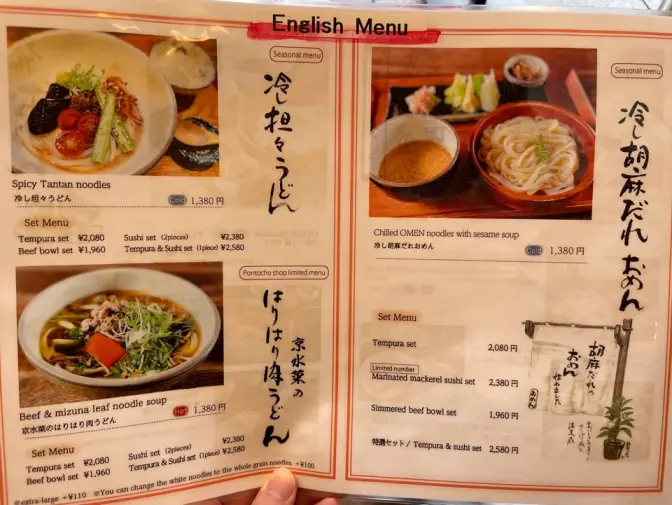 English Menu
Seasonal menu
冷し担々うどん
Spicy Tantan noodles
冷し坦々うどん
Cold 1,380 円
Set Menu
Tempura set ¥2,080 Sushi set (2pieces) ¥2,380
Beef bowl set ¥1,960 Tempura & Sushi set (1piece) ¥2,580
Pontocho shop limited menu
京水菜の
はりはり肉うどん
Beef & mizuna leaf noodle soup
京水菜のはりはり肉うどん
Hot 1,380 円
Set Menu
Tempura set ¥2,080 Sushi set (2pieces) ¥2,380
Beef bowl set ¥1,960 Tempura & Sushi set (1piece) ¥2,580
※extra-large +¥110 ※You can change the white noodles to the whole grain noodles. +¥100
Seasonal menu
冷し胡麻だれおめん
Chilled OMEN noodles with sesame soup
冷し胡麻だれおめん
Cold 1,380 円
Set Menu
Tempura set 2,080 円
Limited number
Marinated mackerel sushi set 2,380 円
Simmered beef bowl set 1,960 円
特選セット/ Tempura & sushi set 2,580 円
胡麻だれの
おめん
おめん